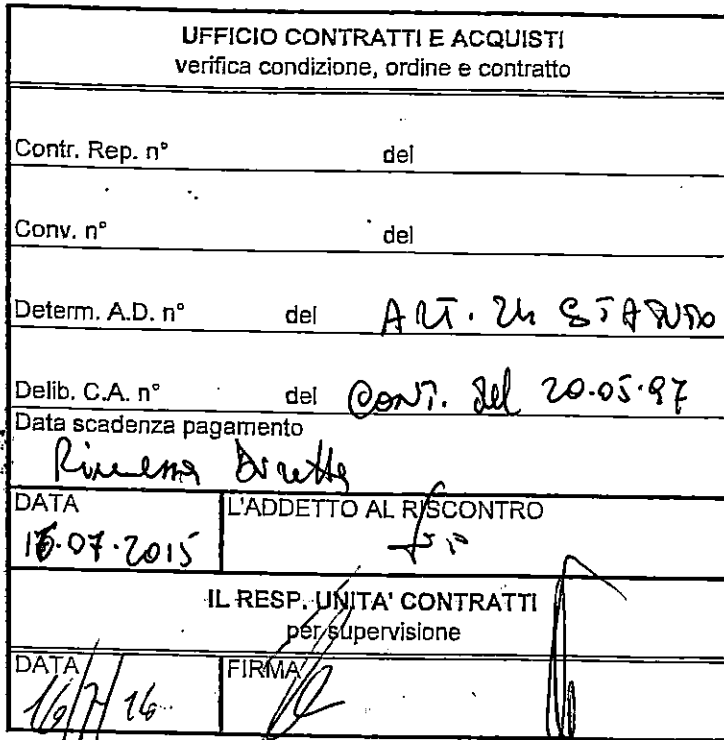 UFFICIO CONTRATTI E ACQUISTI
verifica condizione, ordine e contratto
Contr. Rep. n° del
Conv. n° del
Determ. A.D. n° del ART. 24 STATUTO
Delib. C.A. n° del CONT. del 20.05.97
Data scadenza pagamento
Rimessa Diretta
DATA L'ADDETTO AL RISCONTRO
.07.2015
IL RESP. UNITA' CONTRATTI
per supervisione
DATA FIRMA